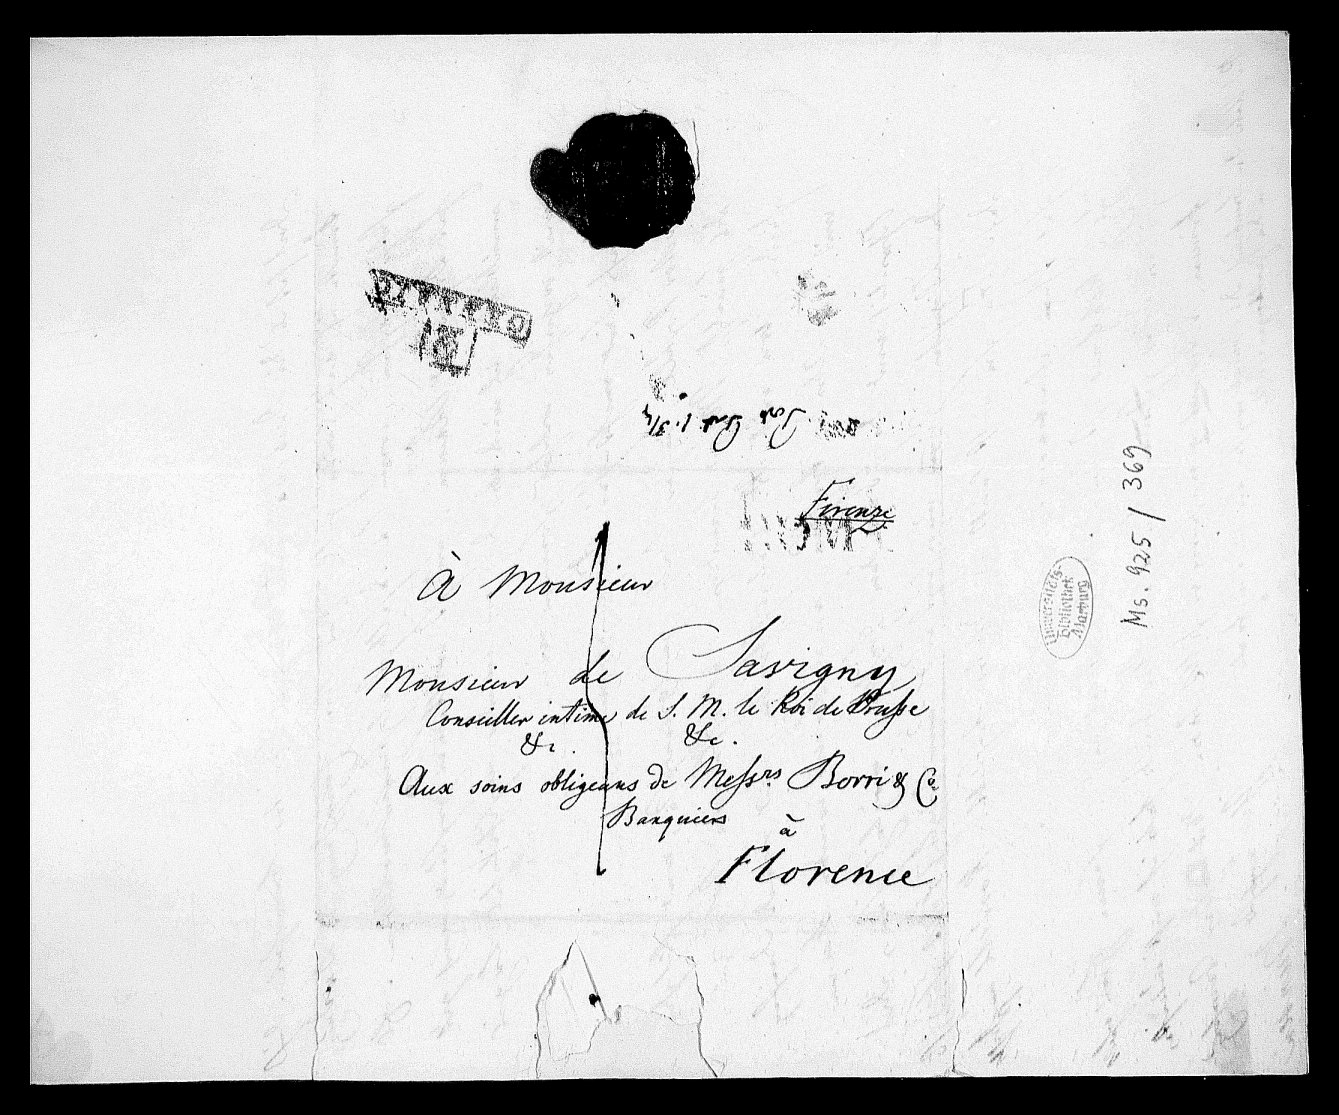 Firenze
ROM
À Monsieur
Monsieur de Savigny
Conseiller intime de S. M. le Roi de Prusse
&c. &c.
Aux soins obligeans de Messrs. Borri & Co.
Banquiers
à
Florence
Universitäts-
Bibliothek
Marburg
Ms. 925 / 369